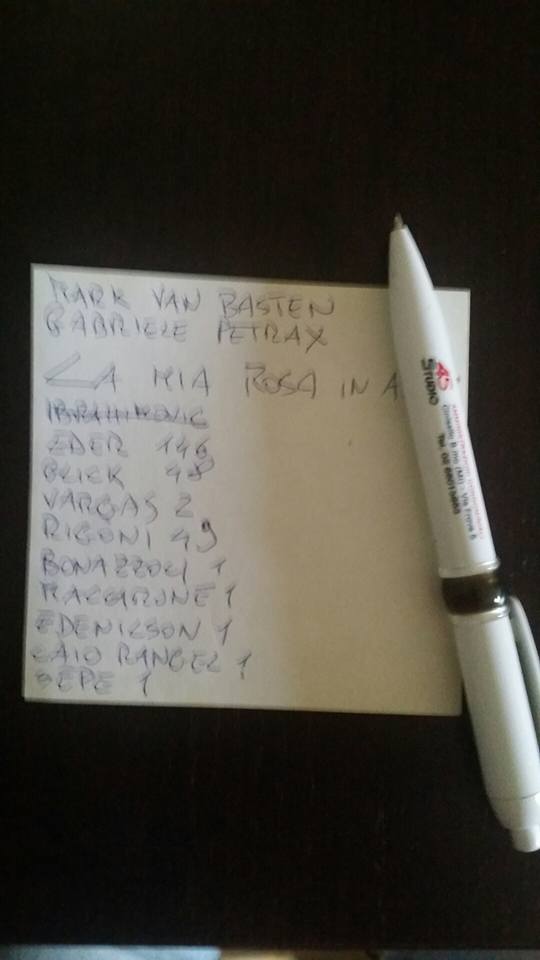 MARK VAN BASTEN
GABRIELE PETRAX
LA MIA ROSA IN A
IBRAHIMOVIC
EDER 146
GLICK 48
VARGAS 2
RIGONI 49
BONAZZOLI 1
MACCARONE 1
EDENILSON 1
CAIO RANGEL 1
SEPE 1
45
STUDIO